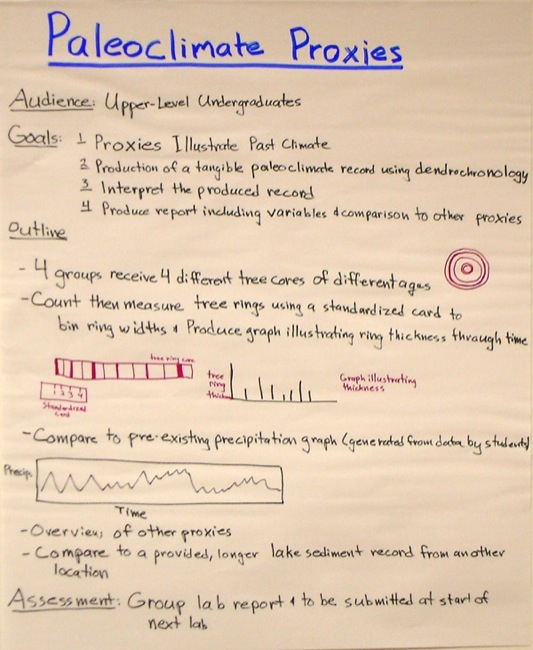 Paleoclimate Proxies
Audience: Upper-Level Undergraduates
Goals: 1 Proxies Illustrate Past Climate
2 Production of a tangible paleoclimate record using dendrochronology
3 Interpret the produced record
4 Produce report including variables & comparison to other proxies
Outline
- 4 groups receive 4 different tree cores of different ages
- Count then measure tree rings using a standardized card to
bin ring widths & Produce graph illustrating ring thickness through time
tree ring core
1 2 3 4
Standardized
card
tree
ring
thick
Graph illustrating
thickness
- Compare to pre-existing precipitation graph (generated from data by students)
Precip.
Time
- Overview of other proxies
- Compare to a provided, longer lake sediment record from another
location
Assessment: Group lab report & to be submitted at start of
next lab